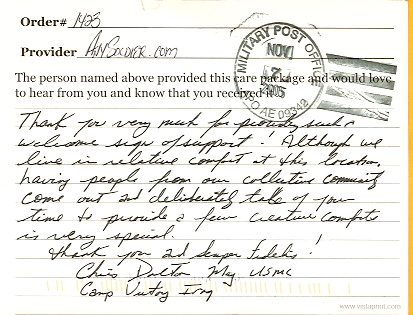 Order# 1423
Provider AnySoldier.com
The person named above provided this care package and would love
to hear from you and know that you received it.
MILITARY POST OFFICE
NOV
7
2005
APO AE 09342
Thank you very much for providing such a
welcome sign of support! Although we
live in relative comfort at this location,
having people from our collective community
come out and deliberately take of your
time to provide a few creature comforts
is very special.
Thank you and Semper Fidelis!
Chris Dalton Maj USMC
Camp Victory Iraq
www.vistaprint.com